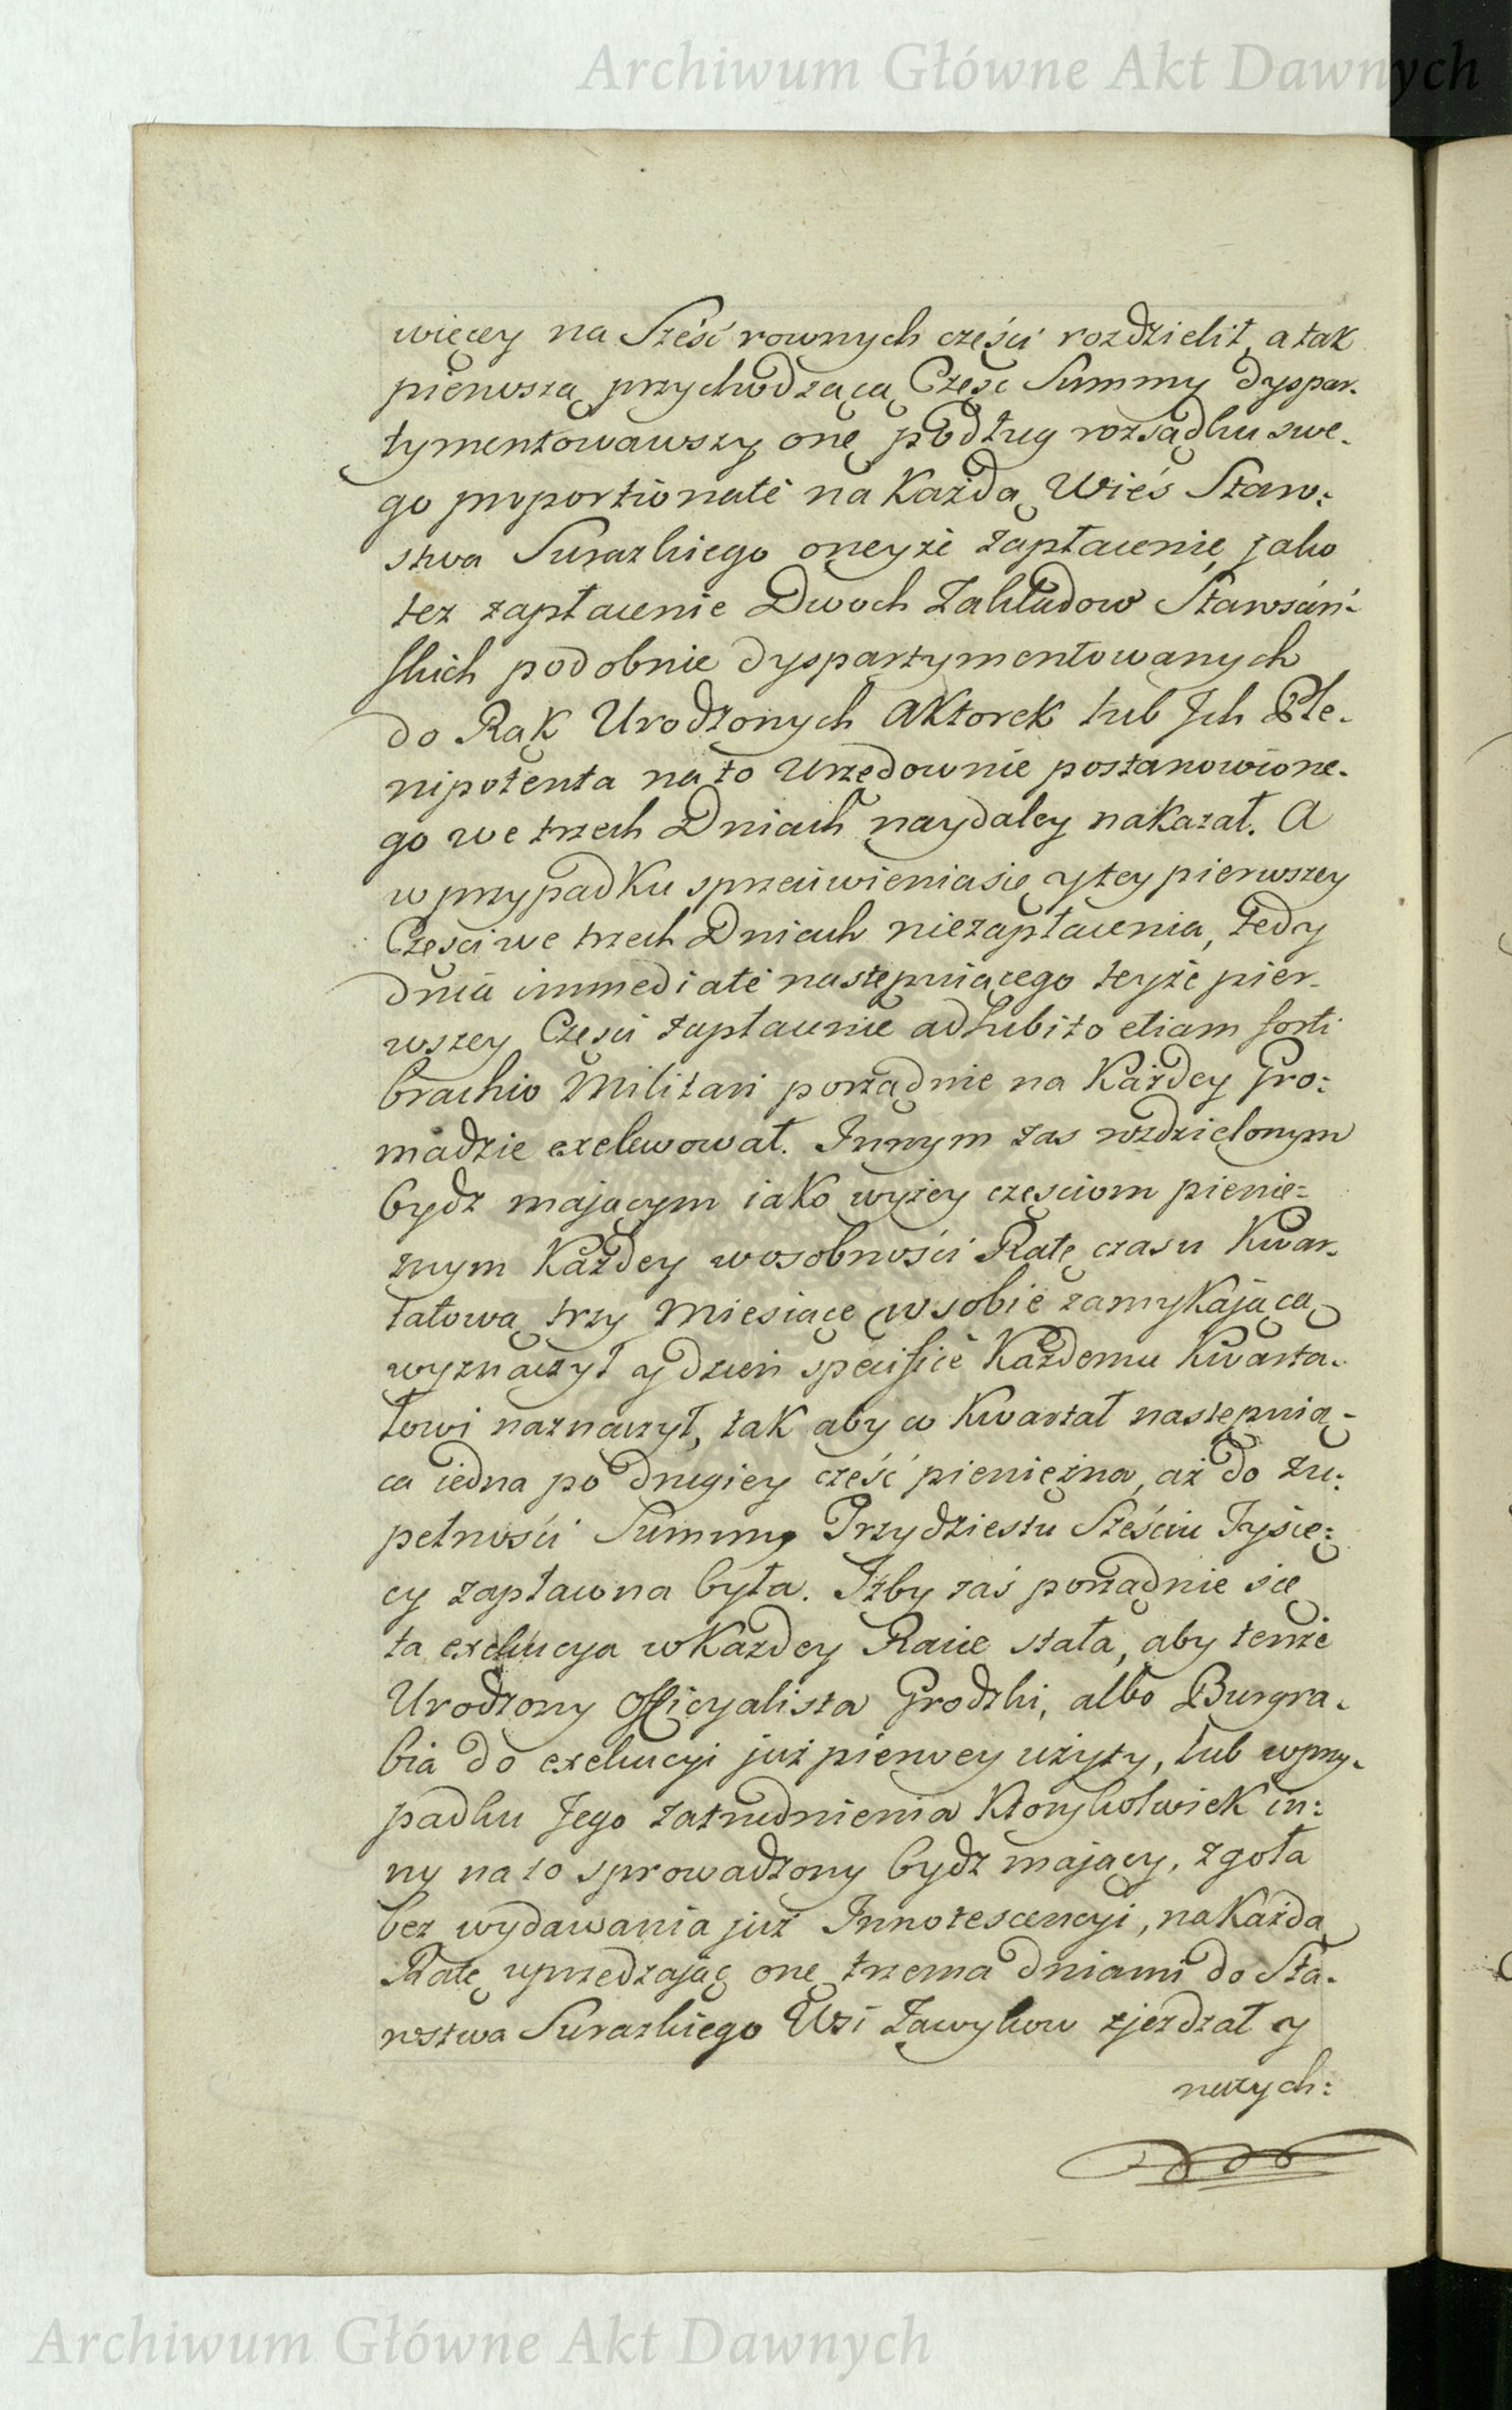 Archiwum Główne Akt Dawnych
więcey na Sześć rownych części rozdzielił, a tak
pierwszą przychodzącą Częsc Summy dyspar-
tymentowawszy onę podług rozsądku swe-
go proportionatè na Każdą Wieś Staro:
stwa Surazkiego oneyże zapłacenie, jako
tez zapłacenie Dwoch Zakładow Starościń-
skich podobnie dyspartymentowanych
do Rąk Urodzonych Aktorek lub Jch Ple-
nipotenta na to Urzędownie postanowione-
go we trzech Dniach naydaley nakazał. A
w przypadku sprzeciwienia się y tey pierwszey
Częsci we trzech Dniach niezapłacenia, tedy
dnia immediatè następuiącego teyże pier-
wszey Częsci zapłacenie adhibito etiam forti
brachio Militari porządnie na Każdey Gro:
madzie exekwował. Innym zas rozdzielonym
bydz mającym iako wyżey częsciom pienię=
żnym Każdey wosobności Ratę czasu Kwar-
tałową trzy Miesiące w sobie zamykającą
wyznaczył y dzień specificè Każdemu Kwarta-
łowi naznaczył, tak aby w Kwartał następuią-
ca iedna po drugiey część pieniężna, aż do zu:
pełności Summy Trzydziestu Sześciu Tysię:
cy zapłacona była. Iżby zaś porządnie się
ta exekucya w Każdey Racie stała, aby tenże
Urodzony Officyalista Grodzki, albo Burgra-
bia do exekucyi już pierwey użyty, lub w przy-
padku Jego zatrudnienia Ktorykolwiek in:
ny na to sprowadzony bydz mający, zgoła
bez wydawania już Innotescencyi, na Każdą
Ratę uprzedzając onę trzema dniami do Sta-
rostwa Surazkiego Wsi Zawykow zjezdzał y
naczych:
Archiwum Główne Akt Dawnych